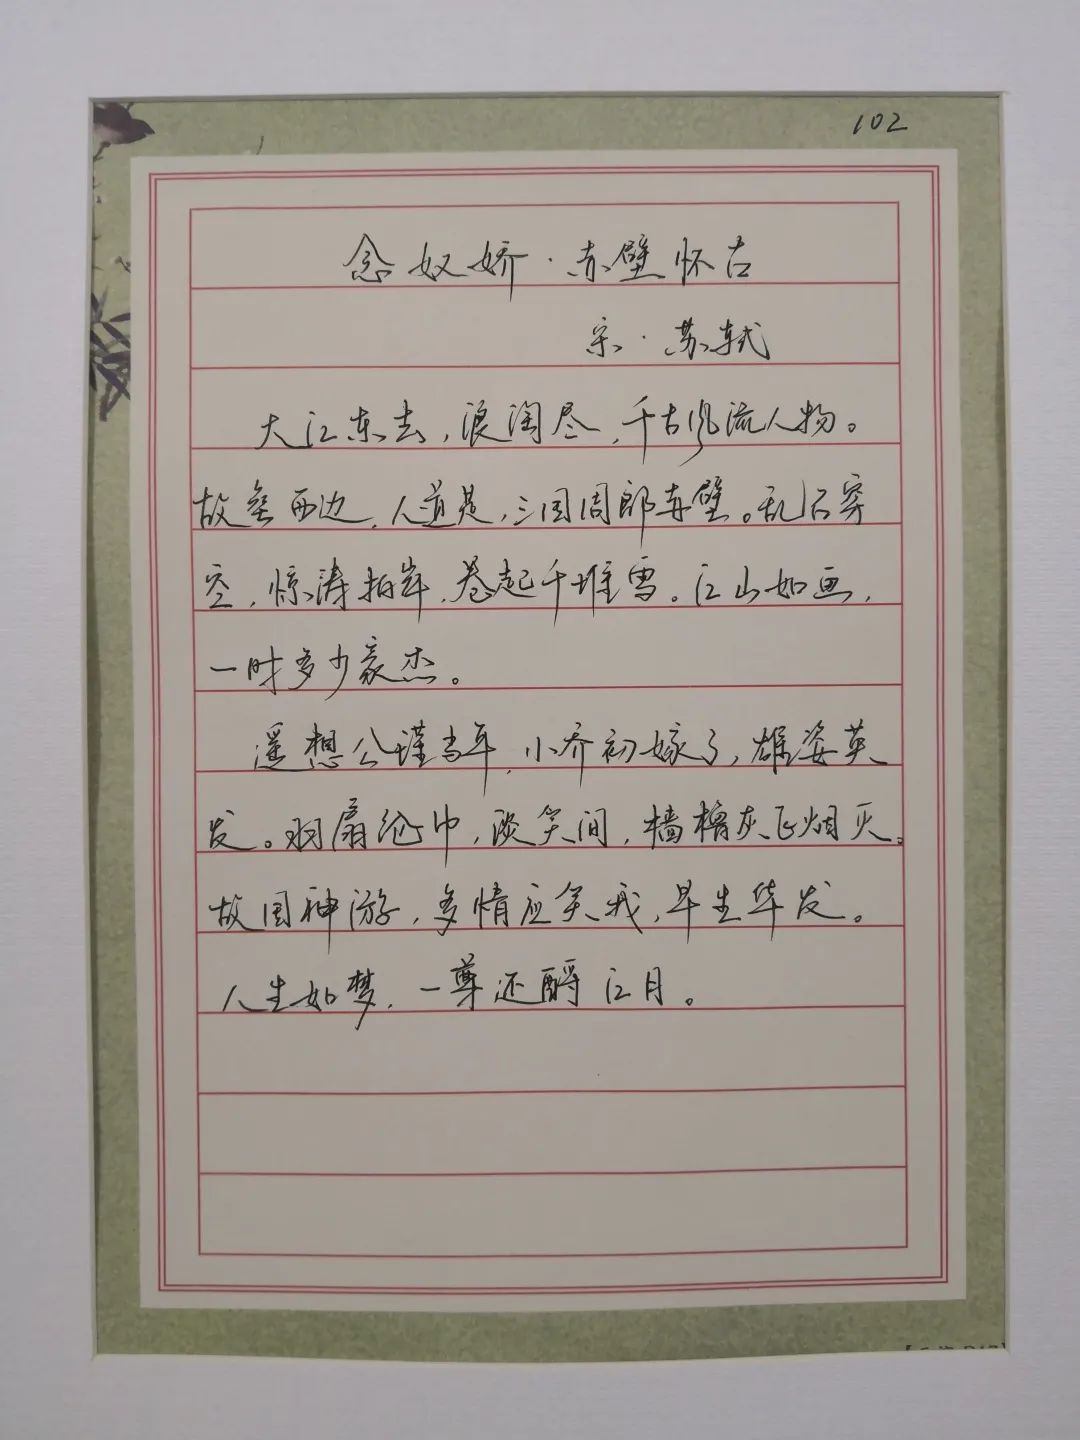 102
念奴娇·赤壁怀古
宋·苏轼
大江东去,浪淘尽,千古风流人物。
故垒西边,人道是,三国周郎赤壁。乱石穿
空,惊涛拍岸,卷起千堆雪。江山如画,
一时多少豪杰。
遥想公瑾当年,小乔初嫁了,雄姿英
发。羽扇纶巾,谈笑间,樯橹灰飞烟灭。
故国神游,多情应笑我,早生华发。
人生如梦,一尊还酹江月。